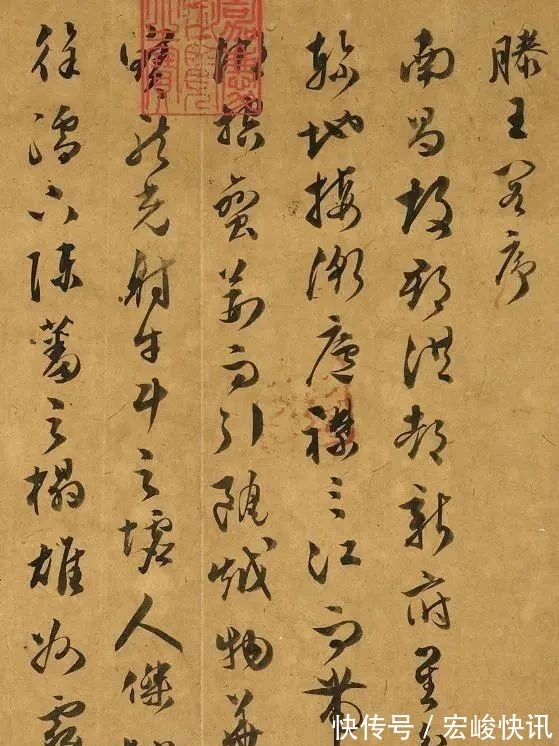 滕王閣序
南昌故郡洪都新府星
軫地接衡廬襟三江而帶
湖控蠻荊而引甌越物華
寶龍光射牛斗之墟人傑地
徐孺下陳蕃之榻雄州霧
快传号/宏峻快讯